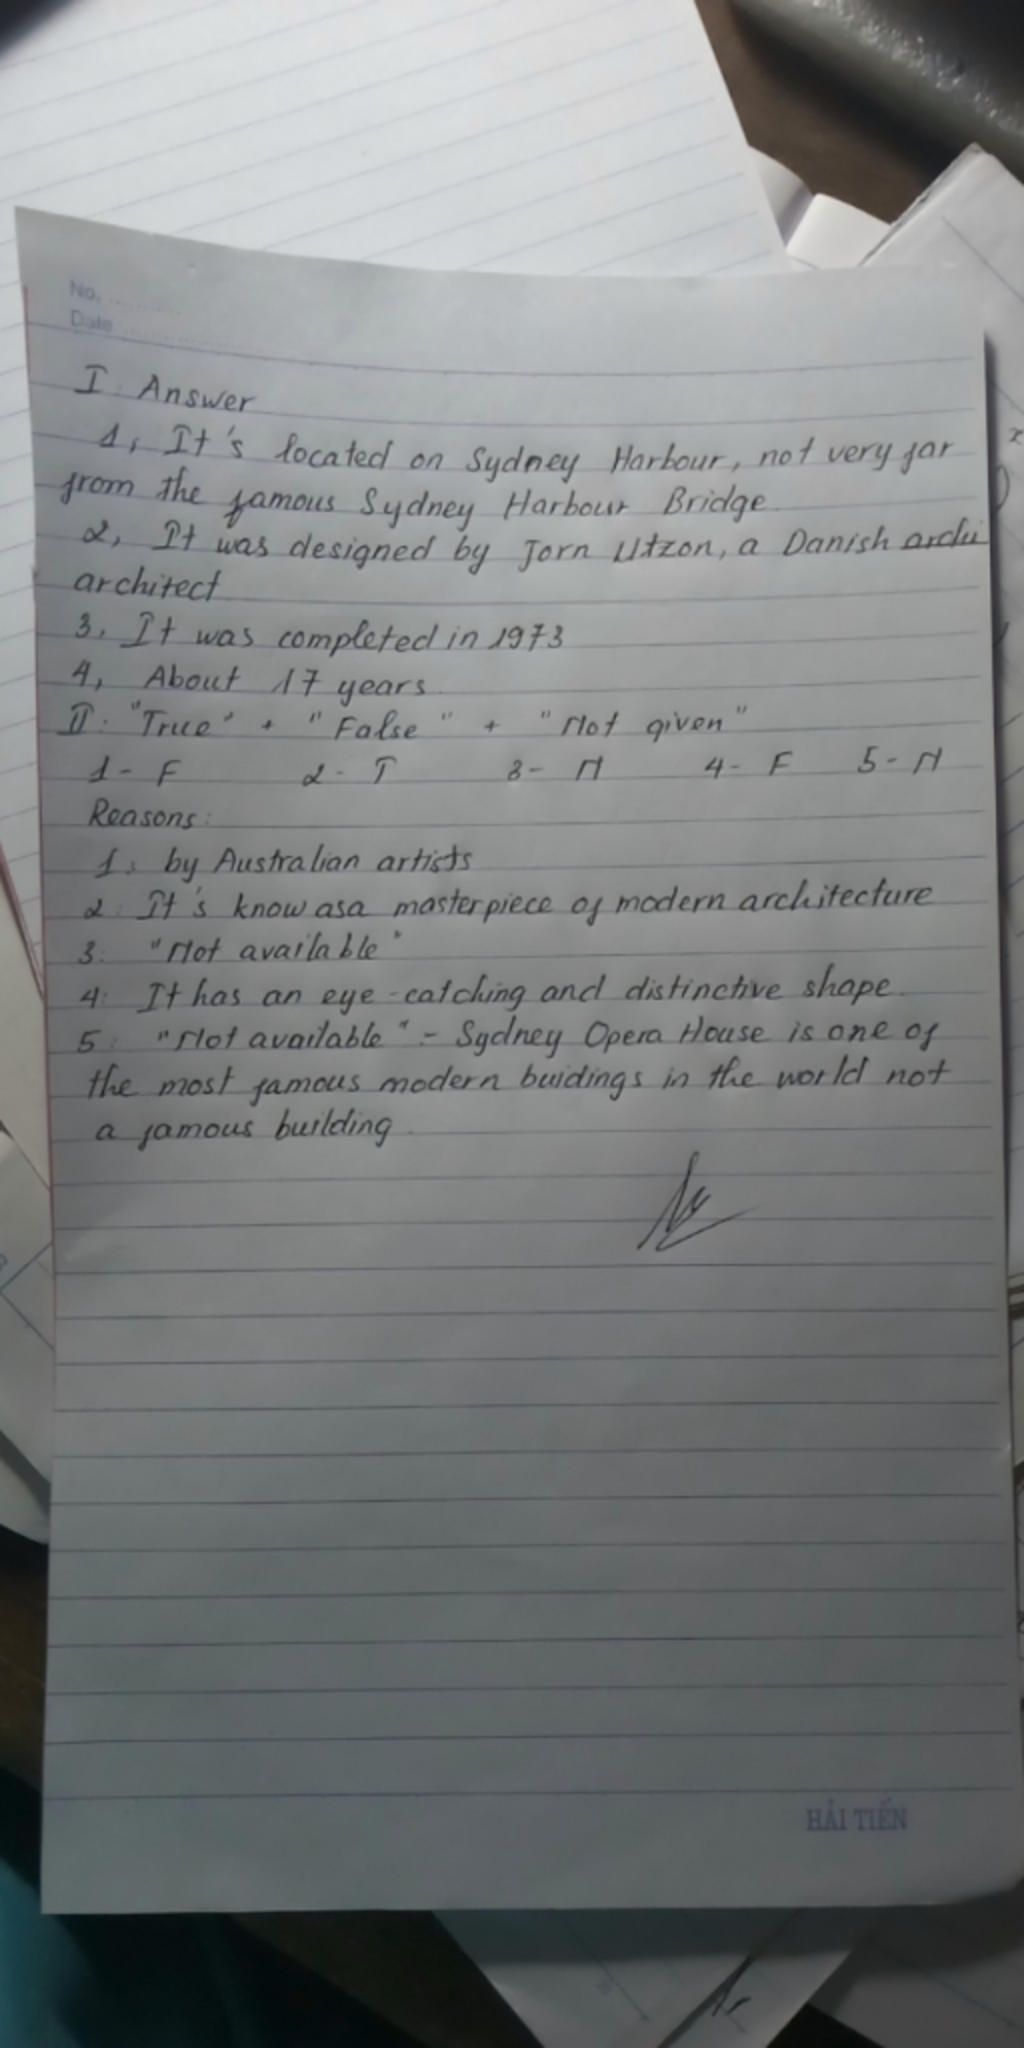 No.
Date
I. Answer
1, It's located on Sydney Harbour, not very far
from the famous Sydney Harbour Bridge.
2, It was designed by Jorn Utzon, a Danish archi
architect
3, It was completed in 1973
4, About 17 years.
II. "True" + "False" + "Not given"
1- F 2- T 3- N 4- F 5- N
Reasons:
1: by Australian artists
2: It's know asa masterpiece of modern architecture
3: "Not available"
4: It has an eye-catching and distinctive shape.
5: "Not available" - Sydney Opera House is one of
the most famous modern buidings in the world not
a famous building.
HẢI TIẾN